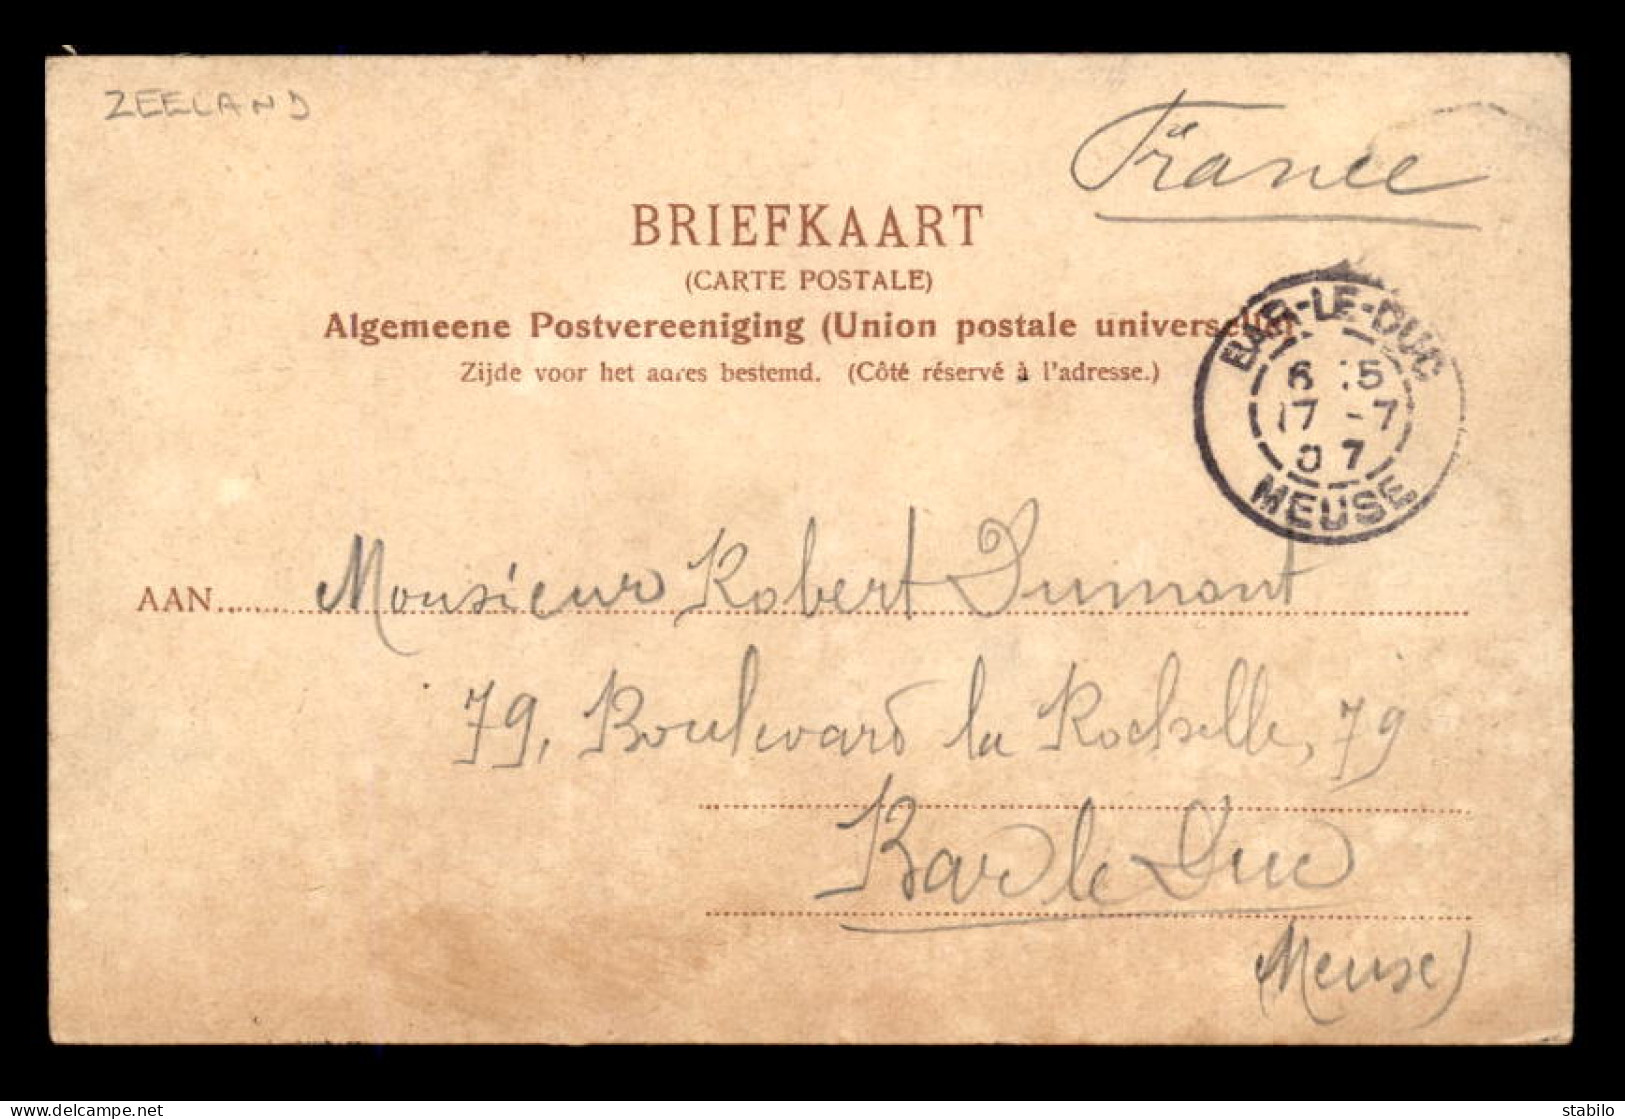 ZEELAND
France
BRIEFKAART
(CARTE POSTALE)
Algemeene Postvereeniging (Union postale universelle)
Zijde voor het adres bestemd. (Côté réservé à l'adresse.)
BAR-LE-DUC
6 15
17 -7
07
MEUSE
AAN Monsieur Robert Dumont
79, Boulevard la Rochelle, 79
Bar le Duc
(Meuse)
www.delcampe.net
stabilo